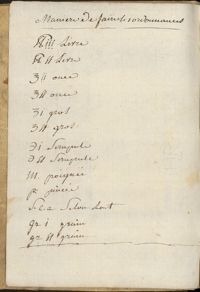 Maniere de faire les ordonnances
℔iii Livre
℔ ß Livre
ʒii once
ʒß once
ʒi gros
ʒß gros
℈i Scrupule
℈ß Scrupule
M. poignée
p. pincée
S. e. a Selon dont
gr i grain
gr ß grain